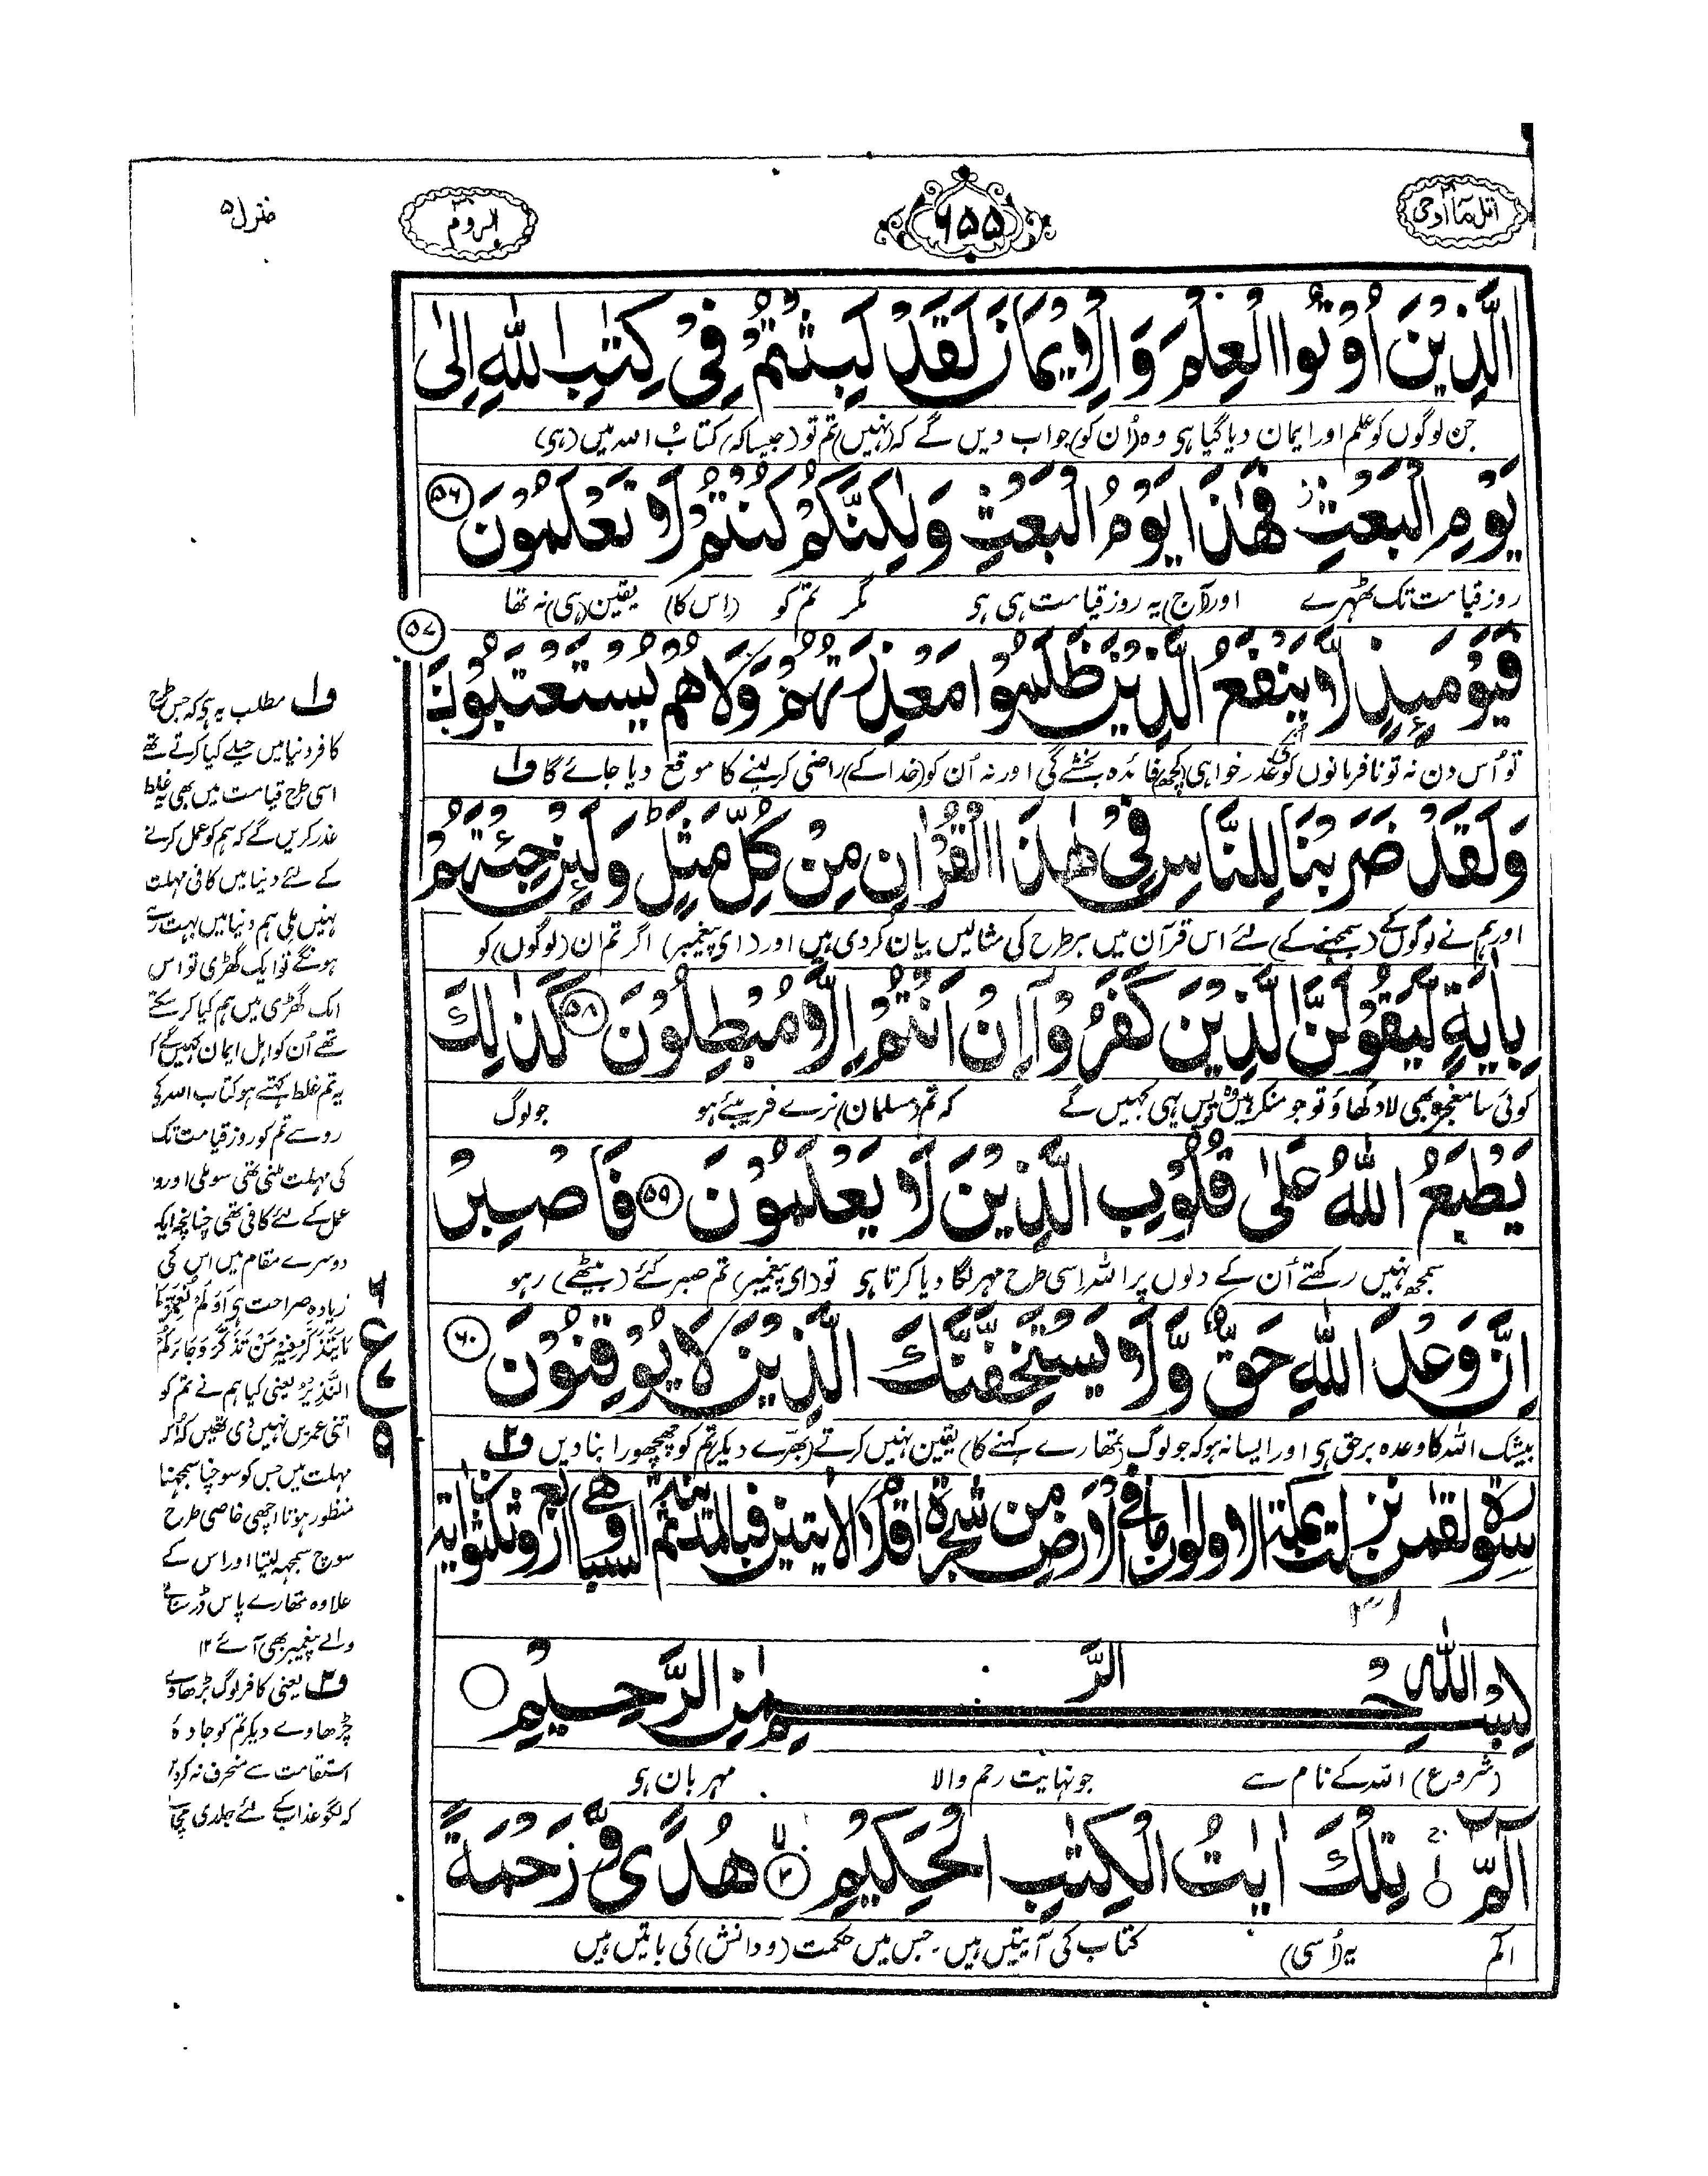 اتل ما اوحی ۲۱
۶۵۵
الروم ۳۰
منزل ۵
الَّذِیْنَ اُوْتُوا الْعِلْمَ وَ الْاِیْمَانَ لَقَدْ لَبِثْتُمْ فِیْ كِتٰبِ اللّٰهِ اِلٰى
جن لوگوں کو علم اور ایمان دیا گیا ہی وہ (اُن کو) جواب دیں گے کہ (نہیں) تم تو (جیسا کہ) کتاب اللہ میں (ہی)
یَوْمِ الْبَعْثِ٘ فَهٰذَا یَوْمُ الْبَعْثِ وَلٰكِنَّكُمْ كُنْتُمْ لَا تَعْلَمُوْنَ ﴿۵۶﴾
روز قیامت تک ٹھہرے اور (آج) یہ روز قیامت ہی ہی مگر تم کو (اس کا) یقین (ہی) نہ تھا
فَیَوْمَىِٕذٍ لَّا یَنْفَعُ الَّذِیْنَ ظَلَمُوْا مَعْذِرَتُهُمْ وَلَا هُمْ یُسْتَعْتَبُوْنَ ﴿۵۷﴾
تو اُس دن نہ تو نافرمانوں کو عذر خواہی (کچھ) فائدہ بخشے گی اور نہ اُن کو (خدا کے) راضی کر لینے کا موقع دیا جائے گا ف۱
وَلَقَدْ ضَرَبْنَا لِلنَّاسِ فِیْ هٰذَا الْقُرْاٰنِ مِنْ كُلِّ مَثَلٍؕ وَلَىِٕنْ جِئْتَهُمْ
اور ہم نے لوگوں کے (سمجھنے کے) لئے اس قرآن میں ہر طرح کی مثالیں بیان کردی ہیں اور (ای پیغمبر) اگر تم ان (لوگوں) کو
بِاٰیَةٍ لَّیَقُوْلَنَّ الَّذِیْنَ كَفَرُوْۤا اِنْ اَنْتُمْ اِلَّا مُبْطِلُوْنَ ﴿۵۸﴾ كَذٰلِكَ
کوئی سا معجزہ بھی لا دکھاؤ تو جو منکر ہیں وہ بس یہی کہیں گے کہ تم (مسلمان) نرے فریبئے ہو جو لوگ
یَطْبَعُ اللّٰهُ عَلٰى قُلُوْبِ الَّذِیْنَ لَا یَعْلَمُوْنَ ﴿۵۹﴾ فَاصْبِرْ
سمجھ نہیں رکھتے اُن کے دلوں پر اللہ اسی طرح مہر لگا دیا کرتا ہی تو (ای پیغمبر) تم صبر کئے (بیٹھے) رہو
اِنَّ وَعْدَ اللّٰهِ حَقٌّ وَّلَا یَسْتَخِفَّنَّكَ الَّذِیْنَ لَا یُوْقِنُوْنَ ﴿۶۰﴾
بیشک اللہ کا وعدہ برحق ہی اور ایسا نہ ہو کہ جو لوگ (تمھارے کہنے کا) یقین نہیں کرتے (بھرّے دیکر) تم کو چھچھورا بنا دیں ف۲
بِسْمِ اللّٰهِ الرَّحْمٰنِ الرَّحِیْمِ
(شروع) اللہ کے نام سے جو نہایت رحم والا مہربان ہی
الٓمّٓ ﴿۱﴾ تِلْكَ اٰیٰتُ الْكِتٰبِ الْحَكِیْمِ ﴿۲﴾ هُدًى وَّ رَحْمَةً
الٓم یہ (اُسی) کتاب کی آیتیں ہیں۔ جس میں حکمت (و دانش) کی باتیں ہیں
ف۱ مطلب یہ ہی کہ جس طرح
کافر دنیا میں حیلے کیا کرتے تھے
اسی طرح قیامت میں بھی یہ غلط
عذر کریں گے کہ ہم کو عمل کرنے
کے لئے دنیا میں کافی مہلت
نہیں ملی ہم دنیا میں بہت رہے
ہونگے تو ایک گھڑی تو اس
ایک گھڑی میں ہم کیا کر سکتے
تھے اُن کو اہل ایمان کہیں گے
یہ تم غلط کہتے ہو کتاب اللہ کی
رو سے تم کو روز قیامت تک
کی مہلت ملنی تھی سو ملی اور وہ
عمل کے لئے کافی تھی چنانچہ ایک
دوسرے مقام میں اس کی
زیادہ صراحت ہی اَوَ لَمْ نُعَمِّرْكُمْ
مَا یَتَذَكَّرُ فِیْهِ مَنْ تَذَكَّرَ وَجَآءَكُمُ
النَّذِیْرُ یعنی کیا ہم نے تم کو
اتنی عمریں نہیں دی تھیں کہ اُس
مہلت میں جس کو سوچنا سمجھنا
منظور ہوتا اچھی خاصی طرح
سوچ سمجھ لیتا اور اس کے
علاوہ تمھارے پاس ڈر سنانے
والے پیغمبر بھی آئے ۱۲
ف۲ یعنی کافر لوگ بڑھاوے
چڑھاوے دیکر تم کو جادۂ
استقامت سے منحرف نہ کر دیں
کہ لگو عذاب کے لئے جلدی مچانے
۶
ع
۷
۹